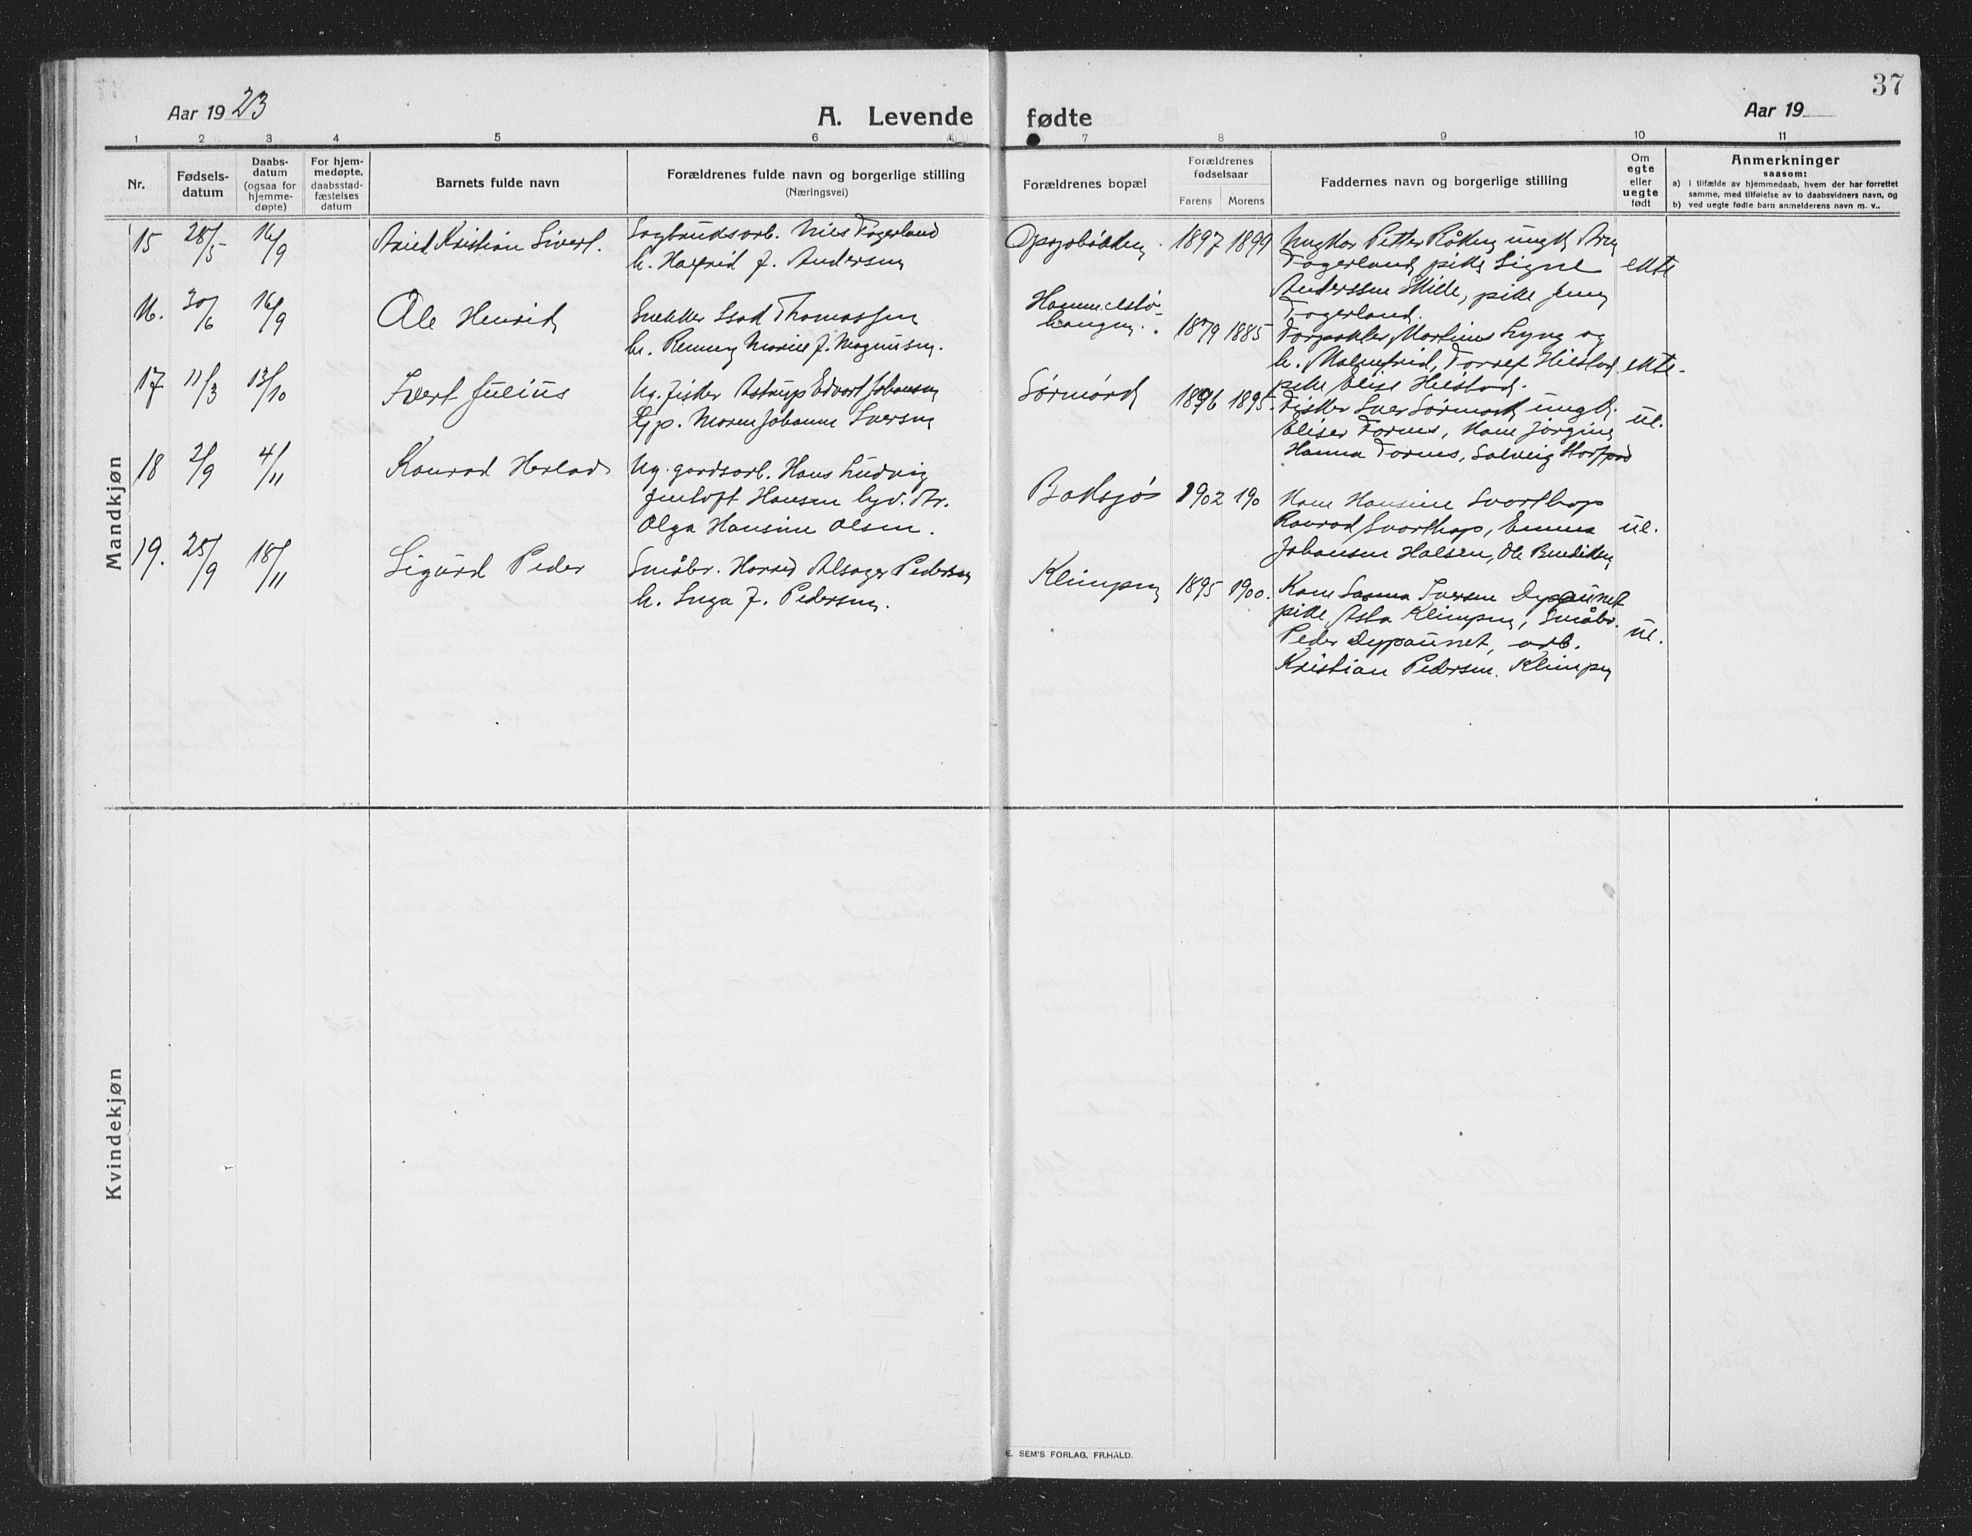 37
Aar 1923
A. Levende fødte
Aar 19
1 2 3 4 5 6 7 8 9 10 11
Nr.
Fødsels-
datum
Daabs-
datum
(ogsaa for
hjemme-
døpte)
For hjem-
medøpte,
daabsstad-
fæstelses
datum
Barnets fulde navn
Forældrenes fulde navn og borgerlige stilling
(Næringsvei)
Forældrenes bopæl
Forældrenes
fødselsaar
Farens Morens
Faddernes navn og borgerlige stilling
Om
egte
eller
uegte
født
Anmerkninger
saasom:
a) i tilfælde av hjemmedaab, hvem der har forrettet
samme, med tilføielse av to daabsvidners navn, og
b) ved uegte fødte barn anmelderens navn m. v..
Mandkjøn
15 28/5 16/9
Kristian Sivert.
Sagbruksarb. Nils Fagerland
h. f. Andersen
1897 1899
Petter ungk.
Fagerland, pike Signe
Anderssen Hille, pike Jenny
Fagerland.
ekte
16. 30/6 16/9
Ole Henrik
Snekker Isak Thomassen
h. Marie f. Magnusen.
1879 1885
Martinus Lyng og
h. Malmfrid,
pike Elise
ekte.
17 11/3 13/10
Ivert Julius
Ug. fisker Astrup Edvart Johansen
Gp. Maren Johanne Iversen
Sørmørd
1896 1895.
Fisker Iver Sørmørd, ungk.
Eliser Fornes, Kone Jørgine
Hanna Fornes, Solveig
ul.
18 2/9 4/11
Konrad
Ug. gardsarb. Hans Ludvig
Jentoft Hansen
Olga Hansine Olsen.
1902 190
Kone Hansine Svarthop
Konrad Svarthop, Emma
Johansen Halsen, Ole Benedikt
ul.
19. 25/9 18/11
Sigurd Peder
Småbr. Alsager Pedersen
h. Inga f. Pedersen.
Klimpen
1895 1900.
Kone Iversen Dypaunet
pike Asta Klimpen, Småbr.
Peder Dypaunet, arb.
Kristian Pedersen. Klimpen
ul.
Kvindekjøn
E. SEM'S FORLAG, FR.HALD.